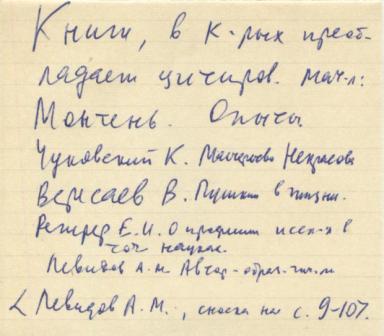 Книги, в к-рых преоб-
ладает цитиров. мат-л:
Монтень. Опыты.
Чуковский К. Мастерство Некрасова
Вересаев В. Пушкин в жизни.
Регирер Е.И. О профессии иссл-я в
точ. науках.
Левидов А.М. Автор-образ-чит-ль
Левидов А.М., сноска на с. 9-107.